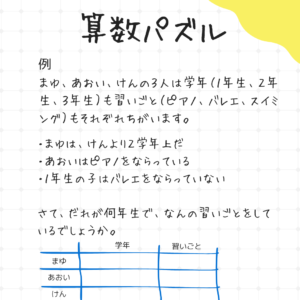 算数パズル
例
まゆ、あおい、けんの3人は学年(1年生、2年
生、3年生)も習いごと(ピアノ、バレエ、スイミ
ング)もそれぞれちがいます。
・まゆは、けんより2学年上だ
・あおいはピアノをならっている
・1年生の子はバレエをならっていない
さて、だれが何年生で、なんの習いごとをして
いるでしょうか。
学年 習いごと
まゆ
あおい
けん